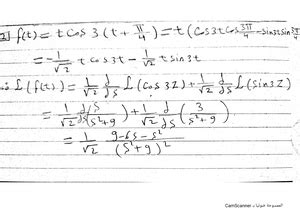 2] f(t) = t cos 3 (t + π/4) = t (cos 3t cos 3π/4 - sin 3t sin 3π/4)
= -1/√2 t cos 3t - 1/√2 t sin 3t
L(f(t)) = 1/√2 d/ds L(cos 3t) + 1/√2 d/ds L(sin 3t)
= 1/√2 d/ds (s/(s²+9)) + 1/√2 d/ds (3/(s²+9))
= 1/√2 (9-6s-s²)/(s²+9)²
CamScanner